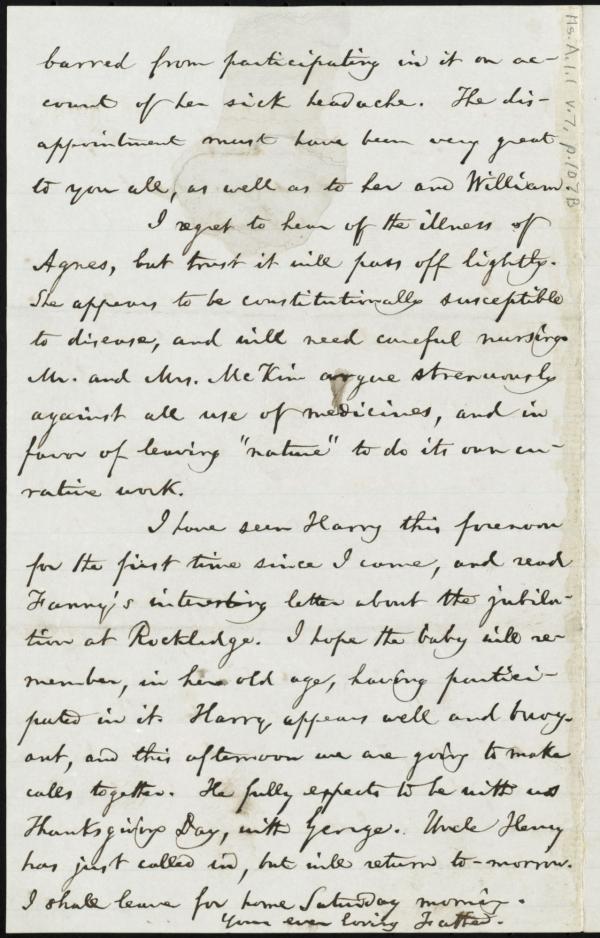 barred from participating in it on ac-
count of her sick headache. The dis-
appointment must have been very great
to you all, as well as to her and William.
I regret to hear of the illness of
Agnes, but trust it will pass off lightly.
She appears to be constitutionally susceptible
to disease, and will need careful nursing.
Mr. and Mrs. McKim argue strenuously
against all use of medicines, and in
favor of leaving "nature" to do its own cu-
rative work.
I have seen Harry this forenoon
for the first time since I came, and read
Fanny's interesting letter about the jubila-
tion at Rockledge. I hope the baby will re-
member, in her old age, having partici-
pated in it. Harry appears well and buoy-
ant, and this afternoon we are going to make
calls together. He fully expects to be with us
Thanksgiving Day, with George. Uncle Henry
has just called in, but will return to-morrow.
I shall leave for home Saturday morning.
Your ever loving Father.
Ms. A. 1. 1 v. 7, p. 107B